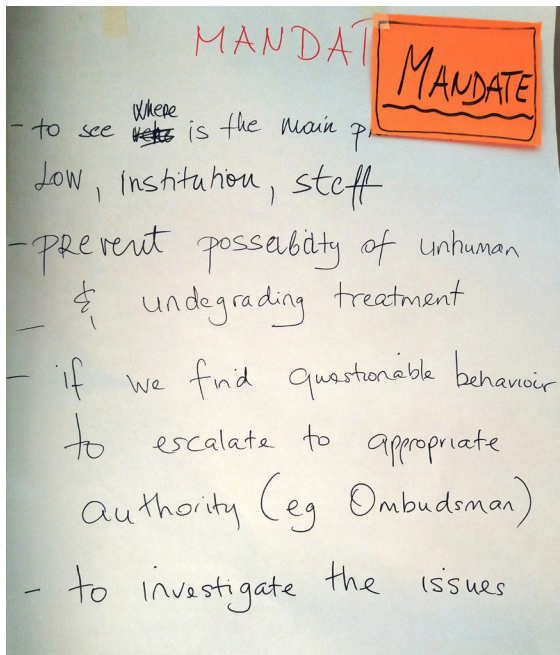 MANDAT
MANDATE
- to see where is the main p
Low, institution, staff
- prevent possebility of unhuman
& undegrading treatment
- if we find questionable behaviour
to escalate to appropriate
authority (eg Ombudsman)
- to investigate the issues